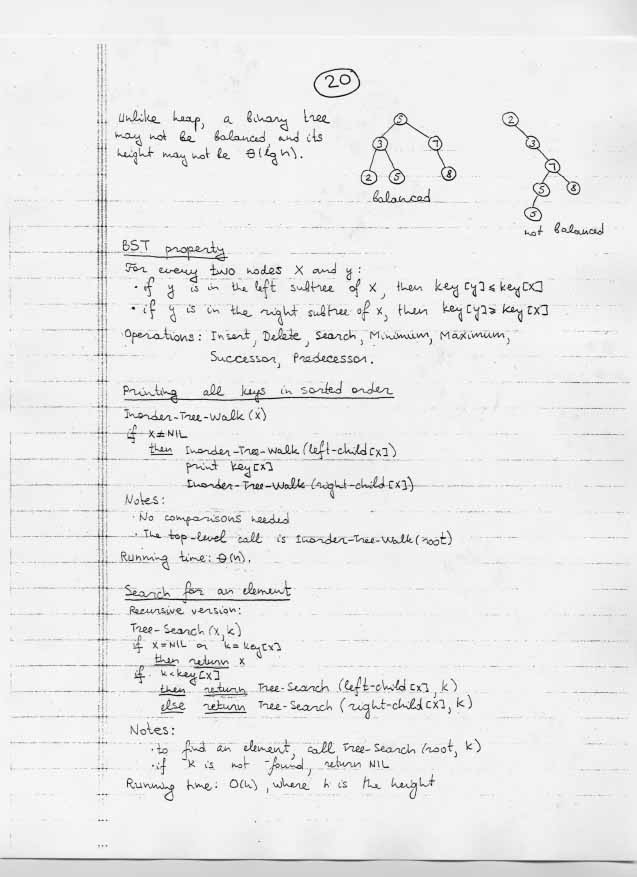 20
Unlike heap, a binary tree
may not be balanced and its
height may not be Θ(lg n).
5
3 7
2 5 8
balanced
2
3
7
5 8
5
not balanced
BST property
For every two nodes x and y:
· if y is in the left subtree of x, then key[y] ≤ key[x]
· if y is in the right subtree of x, then key[y] ≥ key[x]
Operations: Insert, Delete, Search, Minimum, Maximum,
Successor, Predecessor.
Printing all keys in sorted order
Inorder-Tree-Walk (x)
if x≠NIL
then Inorder-Tree-Walk (left-child[x])
print key[x]
Inorder-Tree-Walk (right-child[x])
Notes:
· No comparisons needed
· The top-level call is Inorder-Tree-Walk (root)
Running time: Θ(n).
Search for an element
Recursive version:
Tree-Search (x, k)
if x=NIL or k=key[x]
then return x
if k<key[x]
then return Tree-Search (left-child[x], k)
else return Tree-Search (right-child[x], k)
Notes:
· to find an element, call Tree-Search (root, k)
· if k is not found, return NIL
Running time: O(h), where h is the height